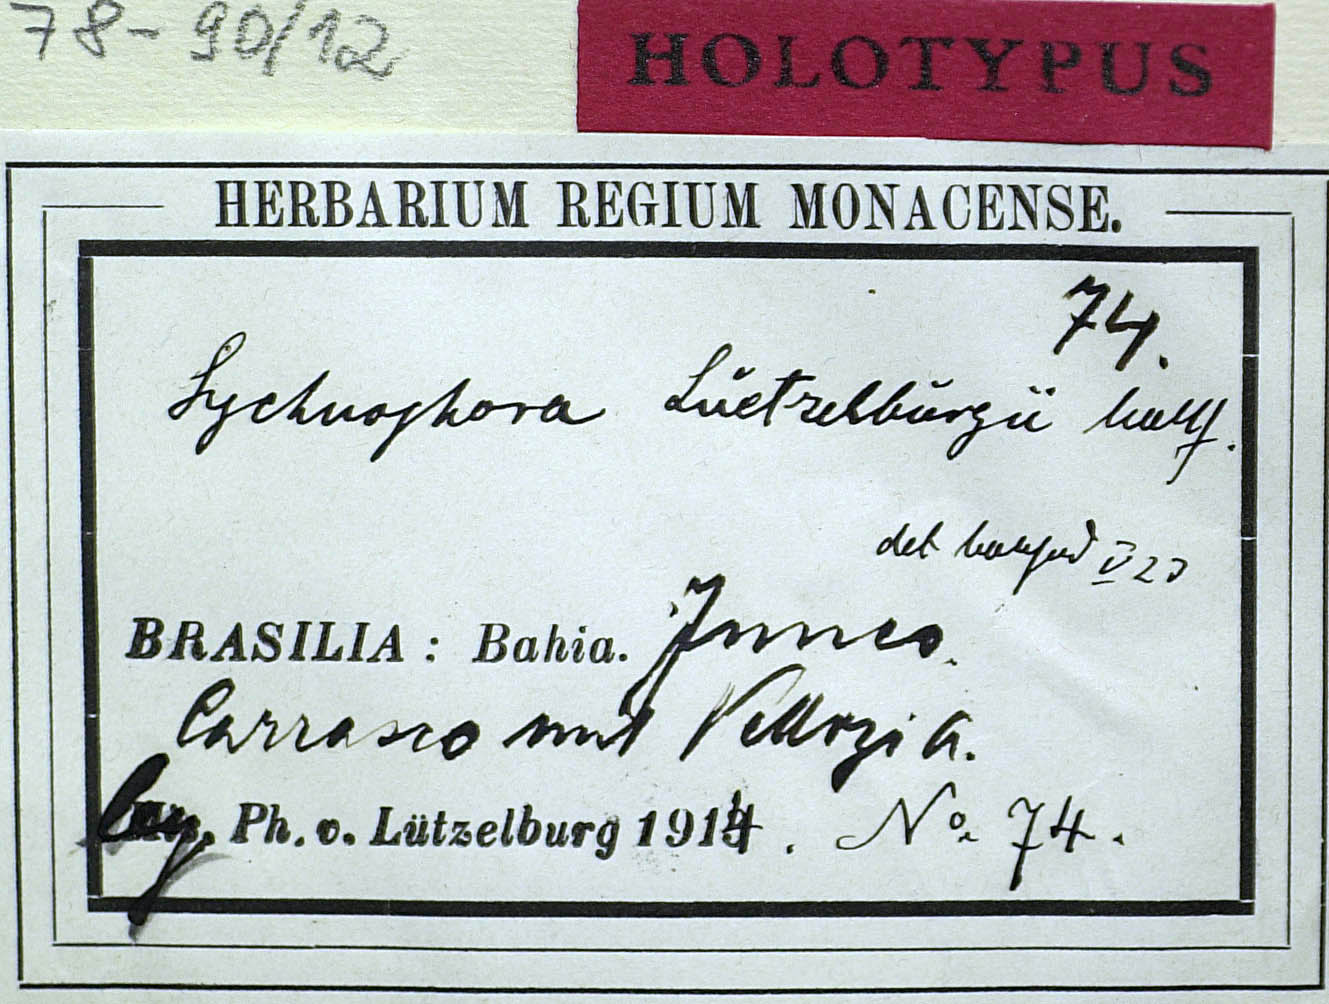 78-90/12
HOLOTYPUS
HERBARIUM REGIUM MONACENSE.
74.
Lychnophora Lüetzelbŭrgii Mattf.
det Mattfeld V 23
BRASILIA: Bahia. Junco.
Carrasco mit Vellozia.
leg. Ph. v. Lützelburg 1914. No. 74.